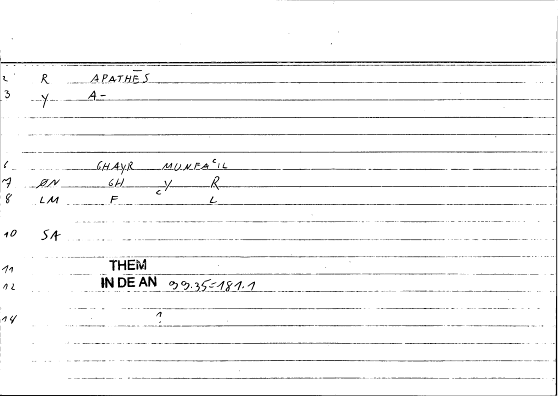 2 R APATHĒS
3 Y A-
6 GHAYR MUNFAʿIL
7 ØN GH Y R
8 LM F ʿ L
10 SA
11 THEM
12 IN DE AN 99.35=181.1
14 1